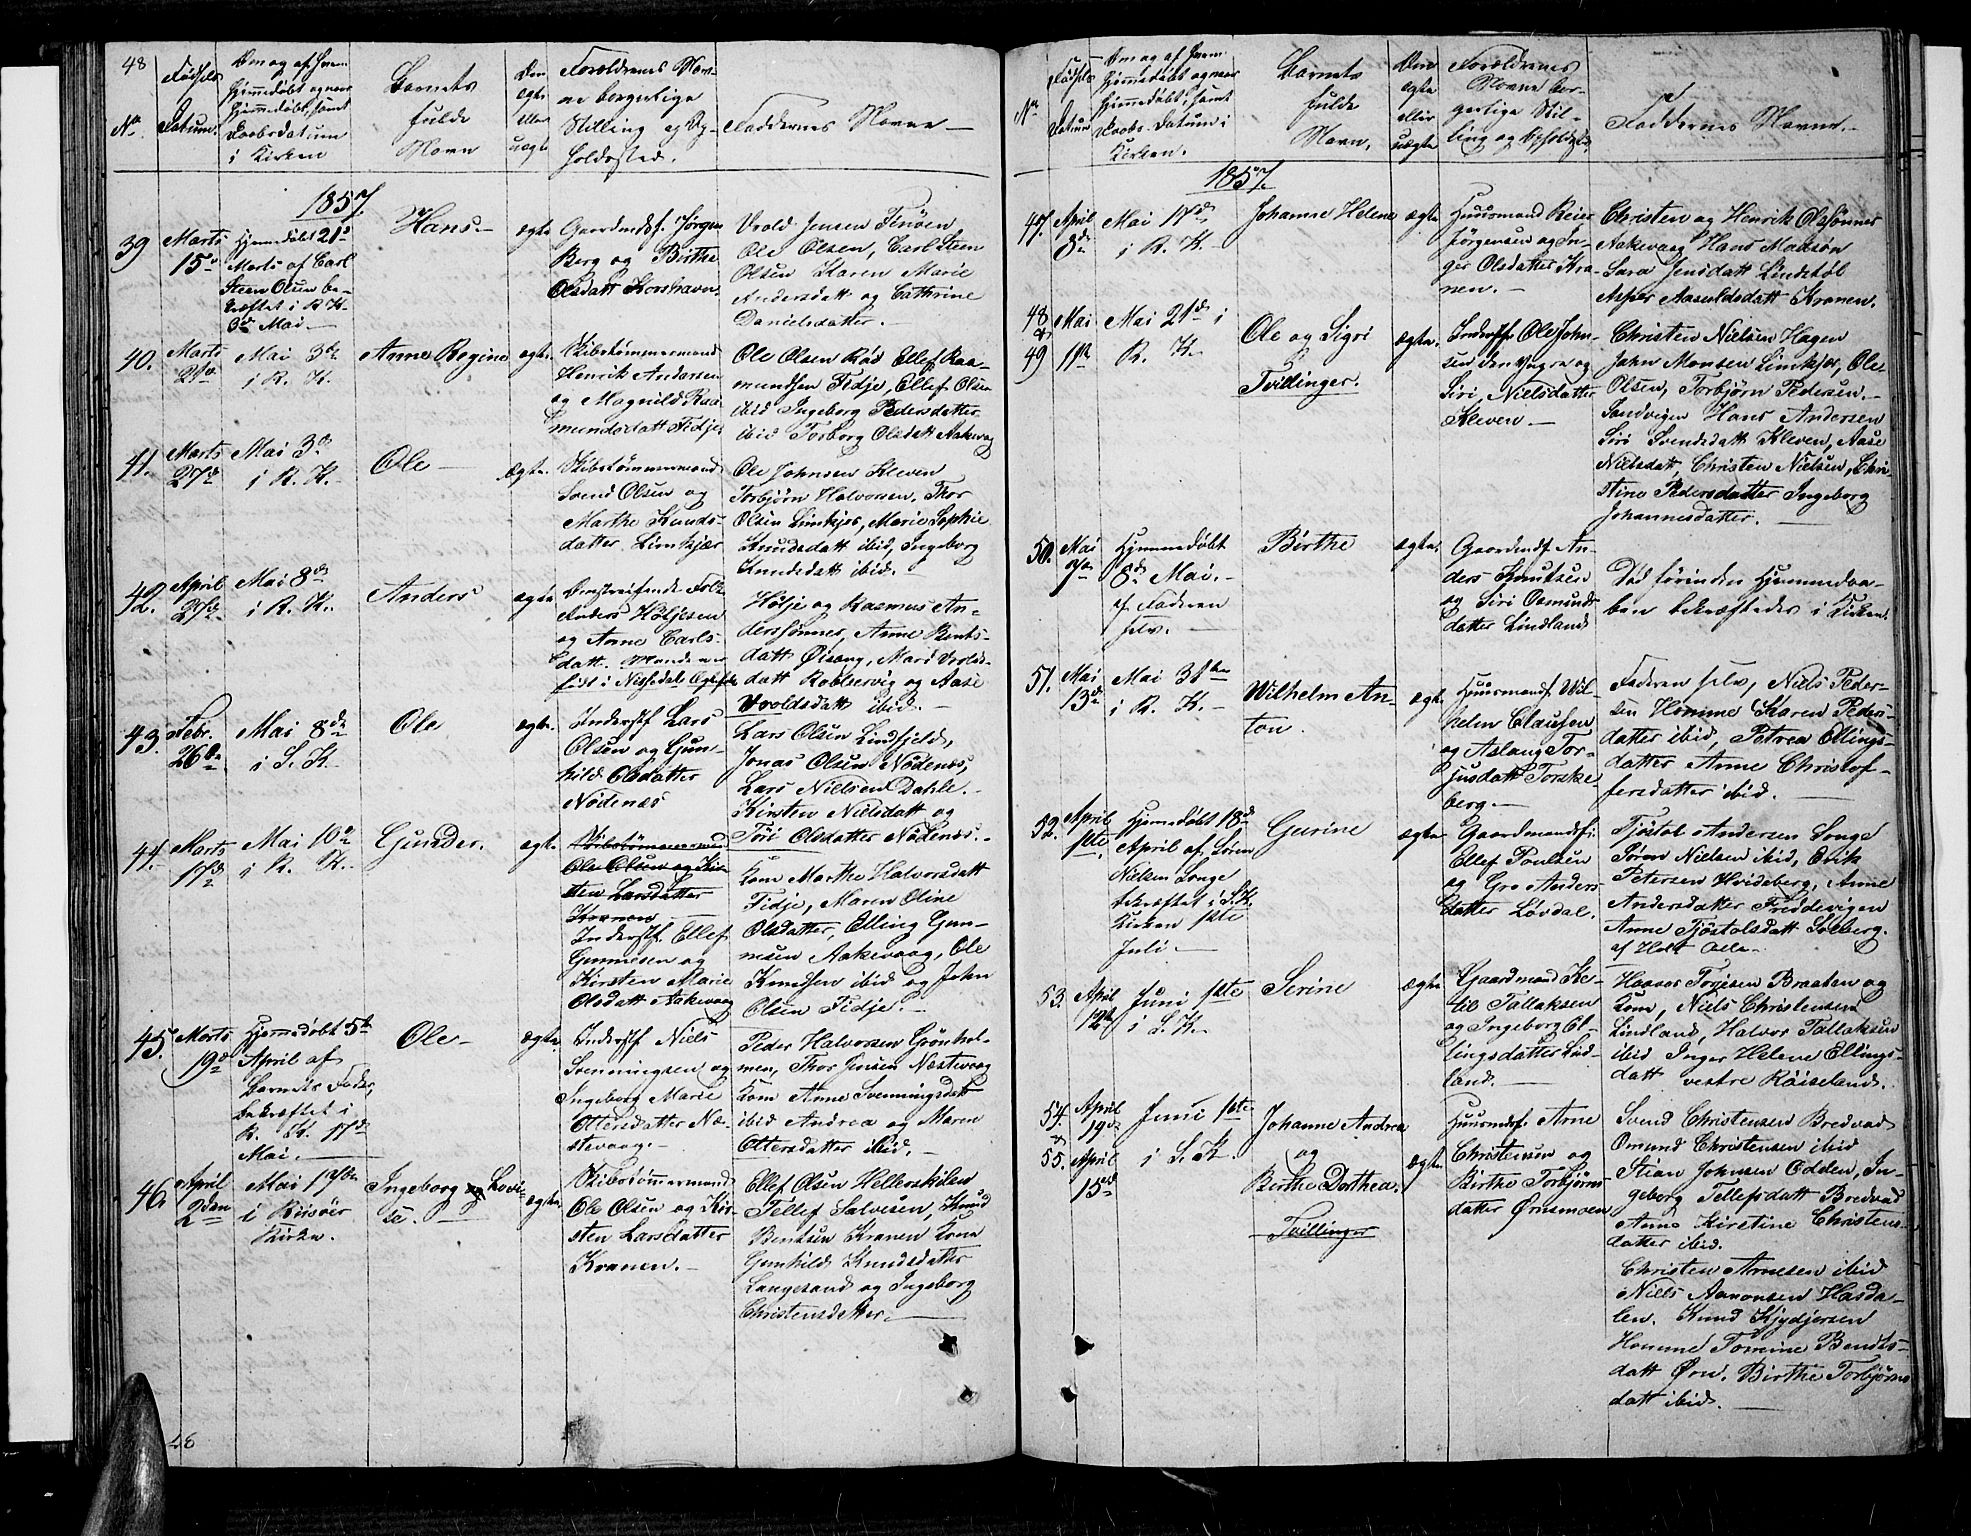 48
No.
Fødsels
Datum.
Om og af hvem
hjemmedøbt og naar
hjemmedøbt, samt
Daabsdatum
i Kirken
Barnets
fulde
Navn
Om
ægte
eller
uægte
Forældrenes Nav-
ne borgerlige
Stilling og Op-
holdssted.
Faddernes Navne
1857.
39
Marts
15de
Hjemmedøbt 21de
Marts af Carl
Steen Olsen be-
kræftet i R. K.
3de Mai.
Hans.
ægte
Gaardmdf. Jørgen
Berg og Birthe
Olsdatt Korshavn.
Vrold Jensen Finøen
Ole Olsen, Carl Steen
Olsen Karen Marie
Andersdatt og Cathrine
Danielsdatter.
40.
Marts
Mai 3de
i R. K.
Anne Regine
ægte.
Skibstømmermand
Henrik Andersen
og Magnild Raa-
mundsdatt Fidje
Ole Olsen Rød Ellef Raa-
mundsen Fidje, Ellef Olsen
ibid Ingeborg Pedersdatter
ibid Torborg Olsdatt Aakevaag
41.
Marts
27de
Mai 3de
i R. K.
Ole
ægte.
Skibstømmermand
Svend Olsen og
Marthe Knuds-
datter Limkjær
Ole Johnsen Kleven
Torbjørn Halvorsen, Thor
Olsen Limkjær, Marie Sophie
Knudsdatt ibid, Ingeborg
Knudsdatt ibid.
42.
April
27de
Mai 8de
i R. K.
Anders
ægte
Omstreifende Folk
Anders Høljesen
og Anne Carls-
datt. Manden er
født i Nissedal
Holje og Rasmus An-
derssønner, Anne Bents-
datt Øisang, Mari Vrolds-
datt Robbersvig og Aase
Vroldsdatt ibid.
43.
Febr.
26de
Mai 8de
i S. K.
Ole
ægte.
Inderstf Lars
Olsen og Gun-
hild Olsdatter
Nødenæs
Lars Olsen Lindfjeld,
Jonas Olsen Nødenæs,
Lars Nielsen Dahle.
Kirsten Nielsdatt og
Tori Olsdatter Nødenæs.
44.
Marts
17de
Mai 10de
i R. K.
Gunder.
ægte.
Skibstømmermand
Ole Olsen og Kir-
sten Larsdatter
Kranen
Inderstf. Ellef
Gunnesen og
Kirsten Marie
Olsdatt Aakevaag
Kom Marthe Halvorsdatt
Fidje, Maren Oline
Olsdatter, Elling Gun-
nesen Aakevaag, Ole
Knudsen ibid og John
Olsen Fidje.
45.
Marts
19de
Hjemmedøbt 5te
April af
Barnets Fader,
bekræftet i
R. K. 17de
Mai.
Ole
ægte.
Inderstf Niels
Svenningsen og
Ingeborg Marie
Ottersdatter Næ-
stevaag.
Peder Halvorsen Grønhol-
men, Thor Jensen Næstevaag
Kom Anne Svenningsdatt
ibid Andrea og Maren
Ottersdatter ibid.
46.
April
2den
Mai 17de
i Risøer
Kirke.
Ingeborg Lovi-
se.
ægte.
Skibstømmermand
Ole Olsen og Kir-
sten Larsdatter
Kranen.
Ellef Olsen Hellerskilen
Tellef Salvesen, Knud
Bentsen Kranen Kom
Gunhild Knudsdatter
Langesand og Ingeborg
Christensdatter.
48
No.
Fødsels
Datum
Om og af hvem
hjemmedøbt og naar
hjemmedøbt, samt
Daabs-Datum i
Kirken.
Barnets
fulde
Navn.
Om
ægte
eller
uægte
Forældrenes
Navne bor-
gerlige Stil-
ling og Opholdst.
Faddernes Navne.
1857.
47.
April
8de
Mai 17de
i R. K.
Johanne Helene
ægte
Huusmand Reier
Jørgensen og In-
ger Olsdatter Kra-
nen.
Christen og Henrik Olssønner
Aakevaag Hans Madsen
Sara Jensdatt Lindstøl
Asper Aasuldsdatt Kranen.
48
&
49
Mai
1ste
Mai 21de i
R. K.
Ole og Sigri
Tvillinger.
ægte.
Inderstf Ole John-
sen den Yngre og
Siri Nielsdatter
Kleven
Christen Nielsen Hagen
John Monsen Limkjær, Ole
Olsen, Torbjørn Pedersen
Sandvigen Hans Andersen
Siri Svendsdatt Kleven, Aase
Nielsdatt, Christen Nielsen, Chri-
stine Pedersdatter Ingeborg
Johannesdatter.
50.
Mai
7de
Hjemmedøbt
8de Mai.
af Faderen
selv.
Birthe
ægte.
Gaardmdf. An-
ders Knutsen
og Siri Osmunds
datter Lindland
Død førinden Hjemmedaa-
ben bekræftedes i Kirken.
51.
Mai
13de
Mai 31te
i R. K.
Wilhelm An-
ton.
ægte
Huusmandf Wil-
helm Clausen
og Aslaug Tor-
jusdatt Torske
berg.
Faderen selv, Niels Peder-
sen Homme Karen Peders-
datter ibid, Petrea Ellings-
datter Anne Christof-
fersdatter ibid.
52.
April
1ste.
Hjemdøbt 18de
April af Søren
Nielsen Songe
bekræftet i S. K.
Kirken 1ste
Juli.
Gurine
ægte
Gaardmandsf:
Ellef Poulsen
og Gro Anders
datter Løvdal.
Tjøstol Andersen Songe
Søren Nielsen ibid, Erik
Petersen Hvideberg, Anne
Andersdatter Freddevigen
Anne Tjøstolsdatt Solberg.
af Holt
53.
April
12te
Juni 1ste
i S. K.
Serine
ægte
Gaardmand Ke-
til Tallaksen
og Ingeborg El-
lingsdatter Lind-
land.
Haavor Torjesen Braaten og
Kom, Niels Christensen
Lindland, Halvor Tallaksen
ibid Inger Helene Ellings-
datt vestre Røiseland.
54.
&
55.
April
19de
April
Juni 1ste
i S. K.
Johanne Andrea
og
Birthe Dorthea.
Tvillinger
ægte
Huusmdf. Arne
Christensen og
Birthe Torbjørns
datter Ørnsmoen
Svend Christensen Bredvad
Omund Christensen ibid
Stian Johnsen Odden, In-
geborg Tellefsdatt Bredvad
Anne Kirstine Christens-
datter ibid.
Christen Arnesen ibid
Niels Aanonsen Hasda-
len. Knud Kjydjersen
Homme Torrine Bendts-
datt Ørn, Birthe Torbjørns
datt ibid.